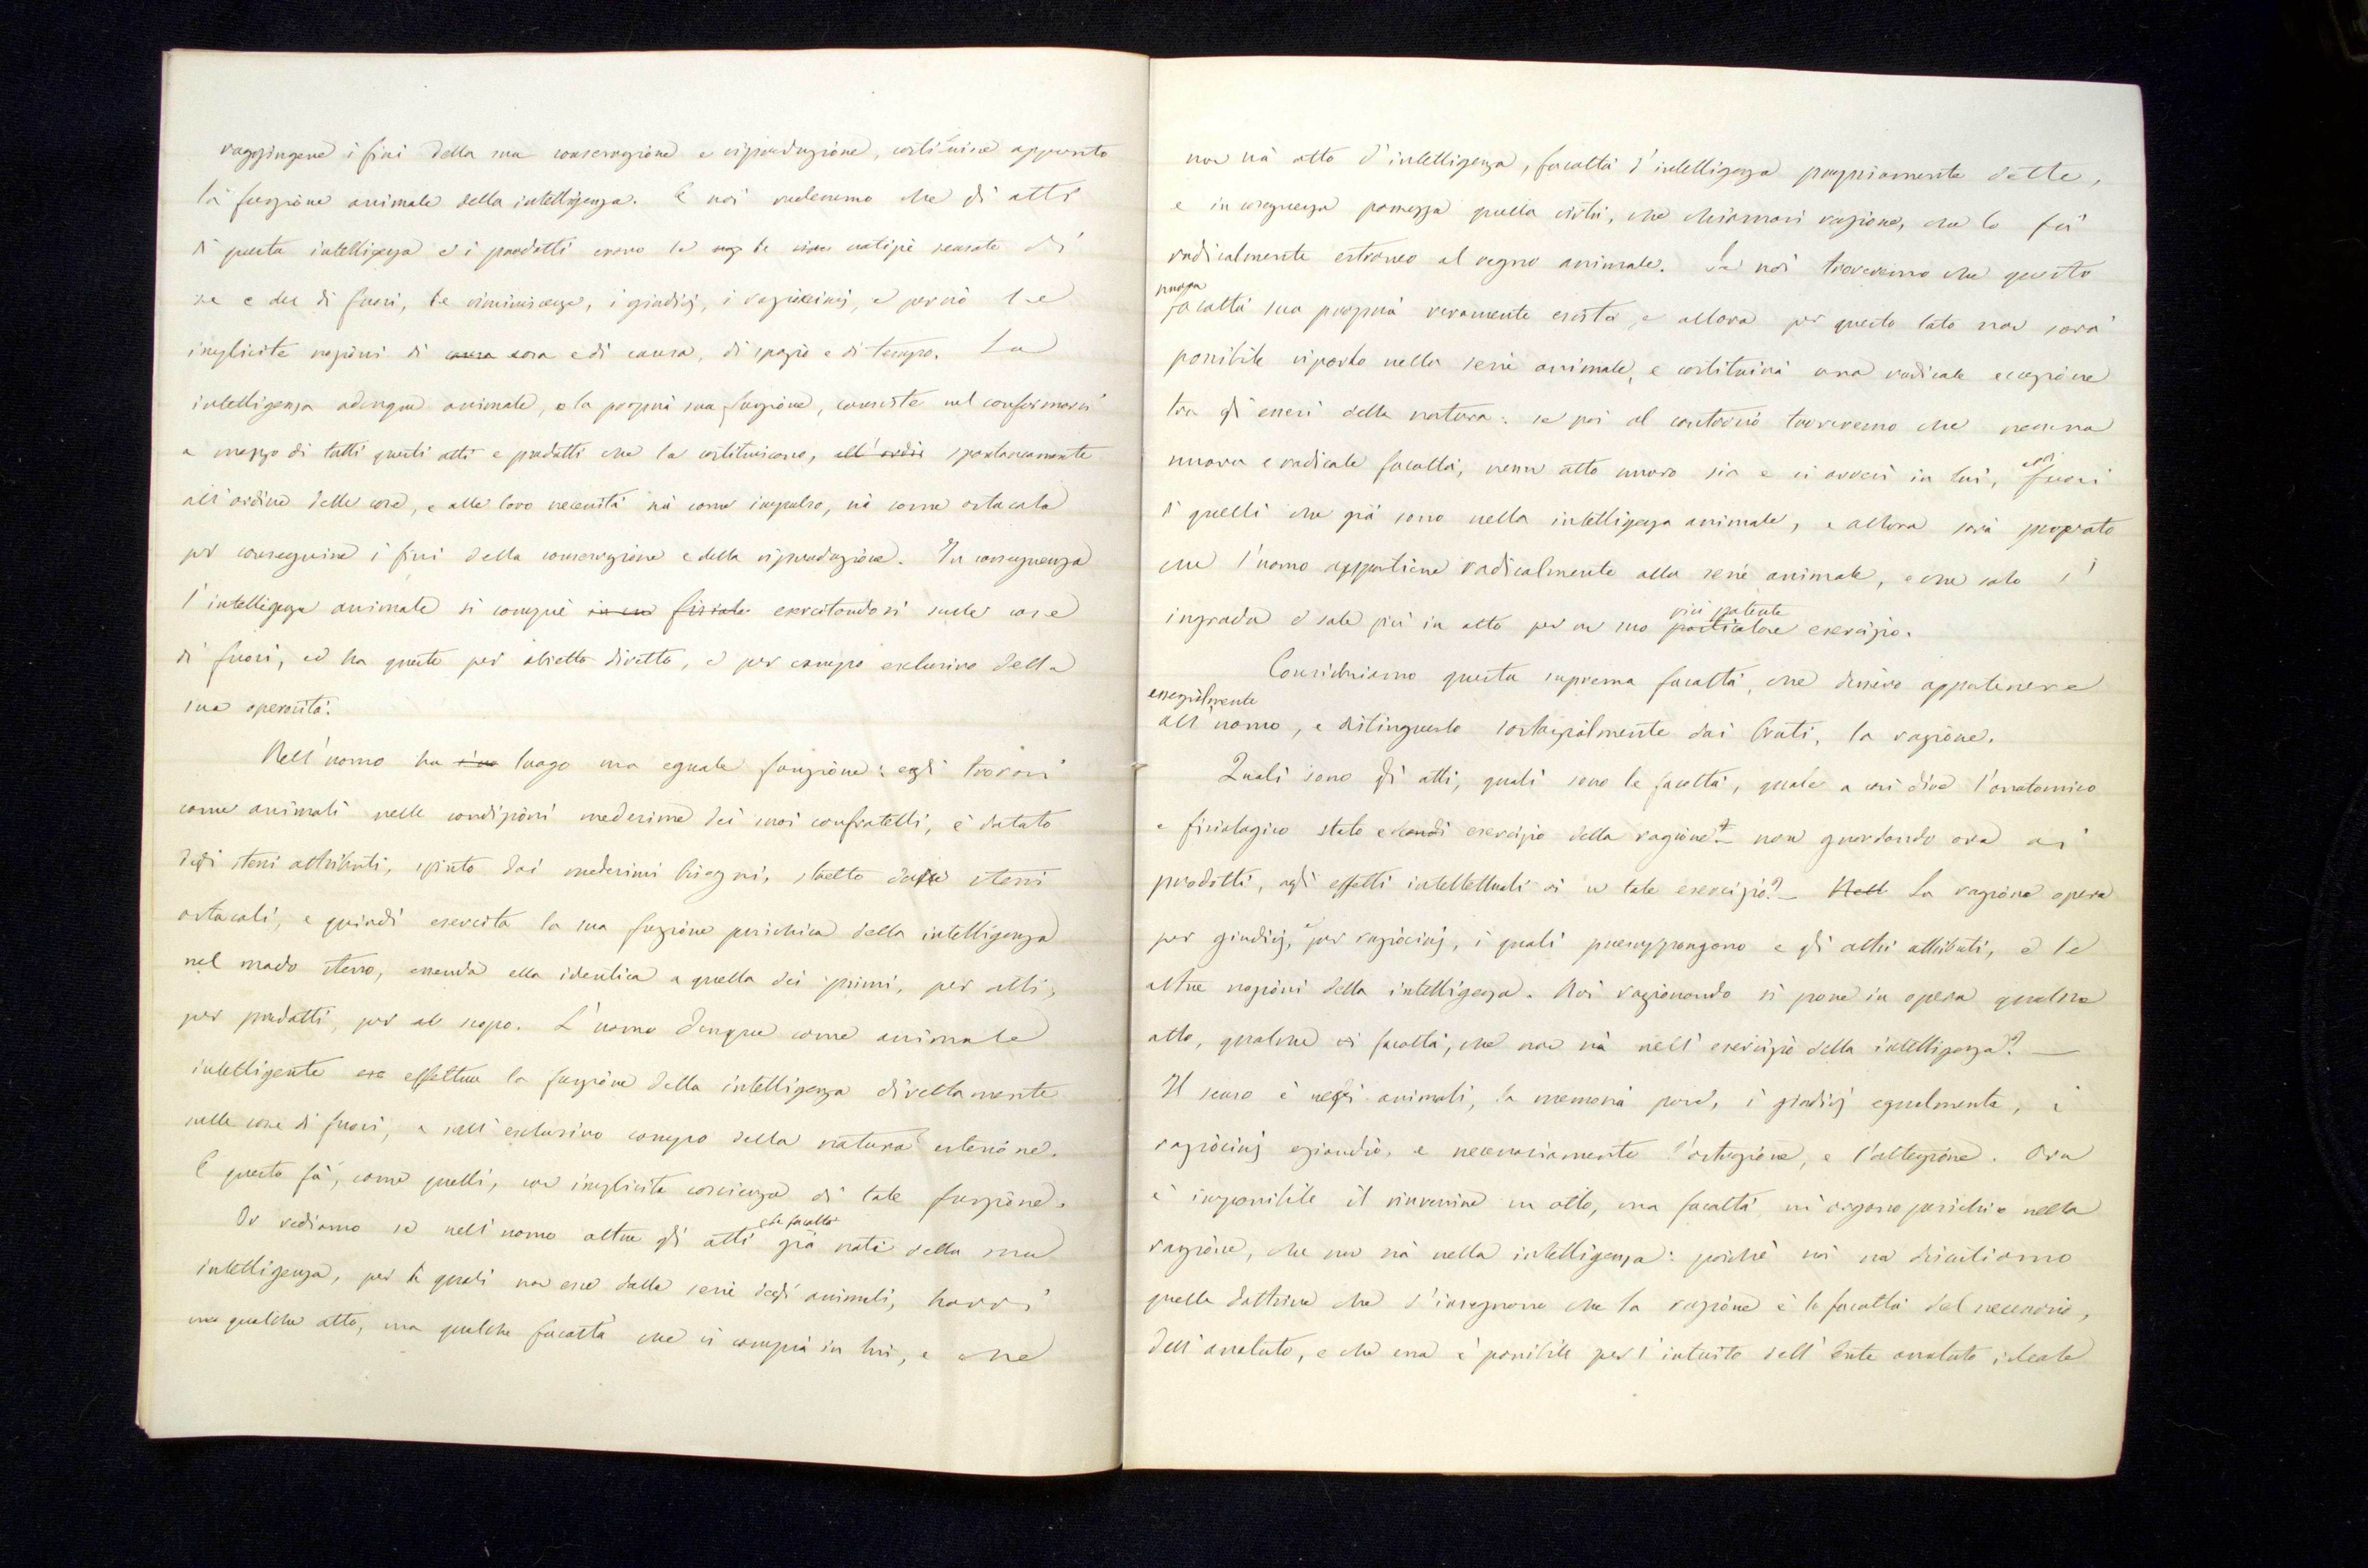 raggiungere i fini della sua conservazione e riproduzione, costituisce appunto
la funzione animale della intelligenza. E noi vedemmo che gli atti
di questa intelligenza ed i prodotti erano le notizie sensate di
se e del di fuori, le riminiscenze, i giudizj, i raziocinj, e perciò le
implicite nozioni di cosa e di causa, di spazio e di tempo. La
intelligenza adunque animale, e la propria sua funzione, consiste nel conformarsi
a mezzo di tutti questi atti e prodotti che la costituiscono, all'ordi spontaneamente
all'ordine delle cose, e alle loro necessità sia come impulso, sia come ostacolo
per conseguire i fini della conservazione e della riproduzione. In conseguenza
l'intelligenza animale si compie esercitandosi sulle cose
di fuori, ed ha queste per obietto diretto, e per campo esclusivo della
sua operosità.
Nell'uomo ha luogo una eguale funzione: egli trovasi
come animali nelle condizioni medesime dei suoi confratelli, è dotato
degli stessi attributi, spinto dai medesimi bisogni, stretto dagli stessi
ostacoli, e quindi esercita la sua funzione psichica della intelligenza
nel modo stesso, essendo ella identica a quella dei primi, per atti,
per prodotti, per scopo. L'uomo dunque come animale
intelligente effettua la funzione della intelligenza direttamente
sulle cose di fuori, e nell'esclusivo campo della natura esteriore.
E questo fà, come quelli, con implicita coscienza di tale funzione.
Or vediamo se nell'uomo oltre gli atti e le facoltà già noti della sua
intelligenza, per i quali non esce dalla serie degli animali, havvi
una qualche atto, una qualche facoltà che si compia in lui, e che
non sia atto d'intelligenza, facoltà d'intelligenza propriamente dette,
e in conseguenza possegga quella virtù, che chiamasi ragione, che lo fà
radicalmente estraneo al regno animale. Se noi troveremo che questa
nuova facoltà sua propria veramente esista, e allora per questo lato non sarà
possibile riporlo nella serie animale, e costituirà una radicale eccezione
tra gli esseri della natura: se poi al contrario troveremo che nessuna
nuova e radicale facoltà, nessun atto nuovo sia e si avveri in lui, fuori
di quelli che già sono nella intelligenza animale, e allora sarà provato
che l'uomo appartiene radicalmente alla serie animale, e che solo s'
ingrada e sale più in alto per un suo particolare più potente esercizio.
Consideriamo questa suprema facoltà, che dissero appartenere
essenzialmente all'uomo, e distinguerlo sostanzialmente dai bruti, la ragione.
Quali sono gli atti, quali sono le facoltà, quale a così dire l'anatomico
e fisiologico stato ed esercizio della ragione? non guardando ora ai
prodotti, agli effetti intellettuali di un tale esercizio? — Nell La ragione opera
per giudizj, e per raziocinj, i quali presuppongono e gli altri attributi, e le
altre nozioni della intelligenza. Noi ragionando si pone in opera qualche
atto, qualche facoltà, che non sia nell'esercizio della intelligenza? —
Il senso è negli animali, la memoria pure, i giudizj egualmente, i
raziocinj eziandio, e necessariamente l'astrazione, e l'attenzione. Ora
è impossibile il rinvenire un atto, una facoltà, un organo psichico nella
ragione, che non sia nella intelligenza: poichè noi non discutiamo
quelle dottrine che c'insegnano che la ragione è la facoltà del necessario,
dell'assoluto, e che essa è possibile per l'intuito dell'Ente assoluto, ideale